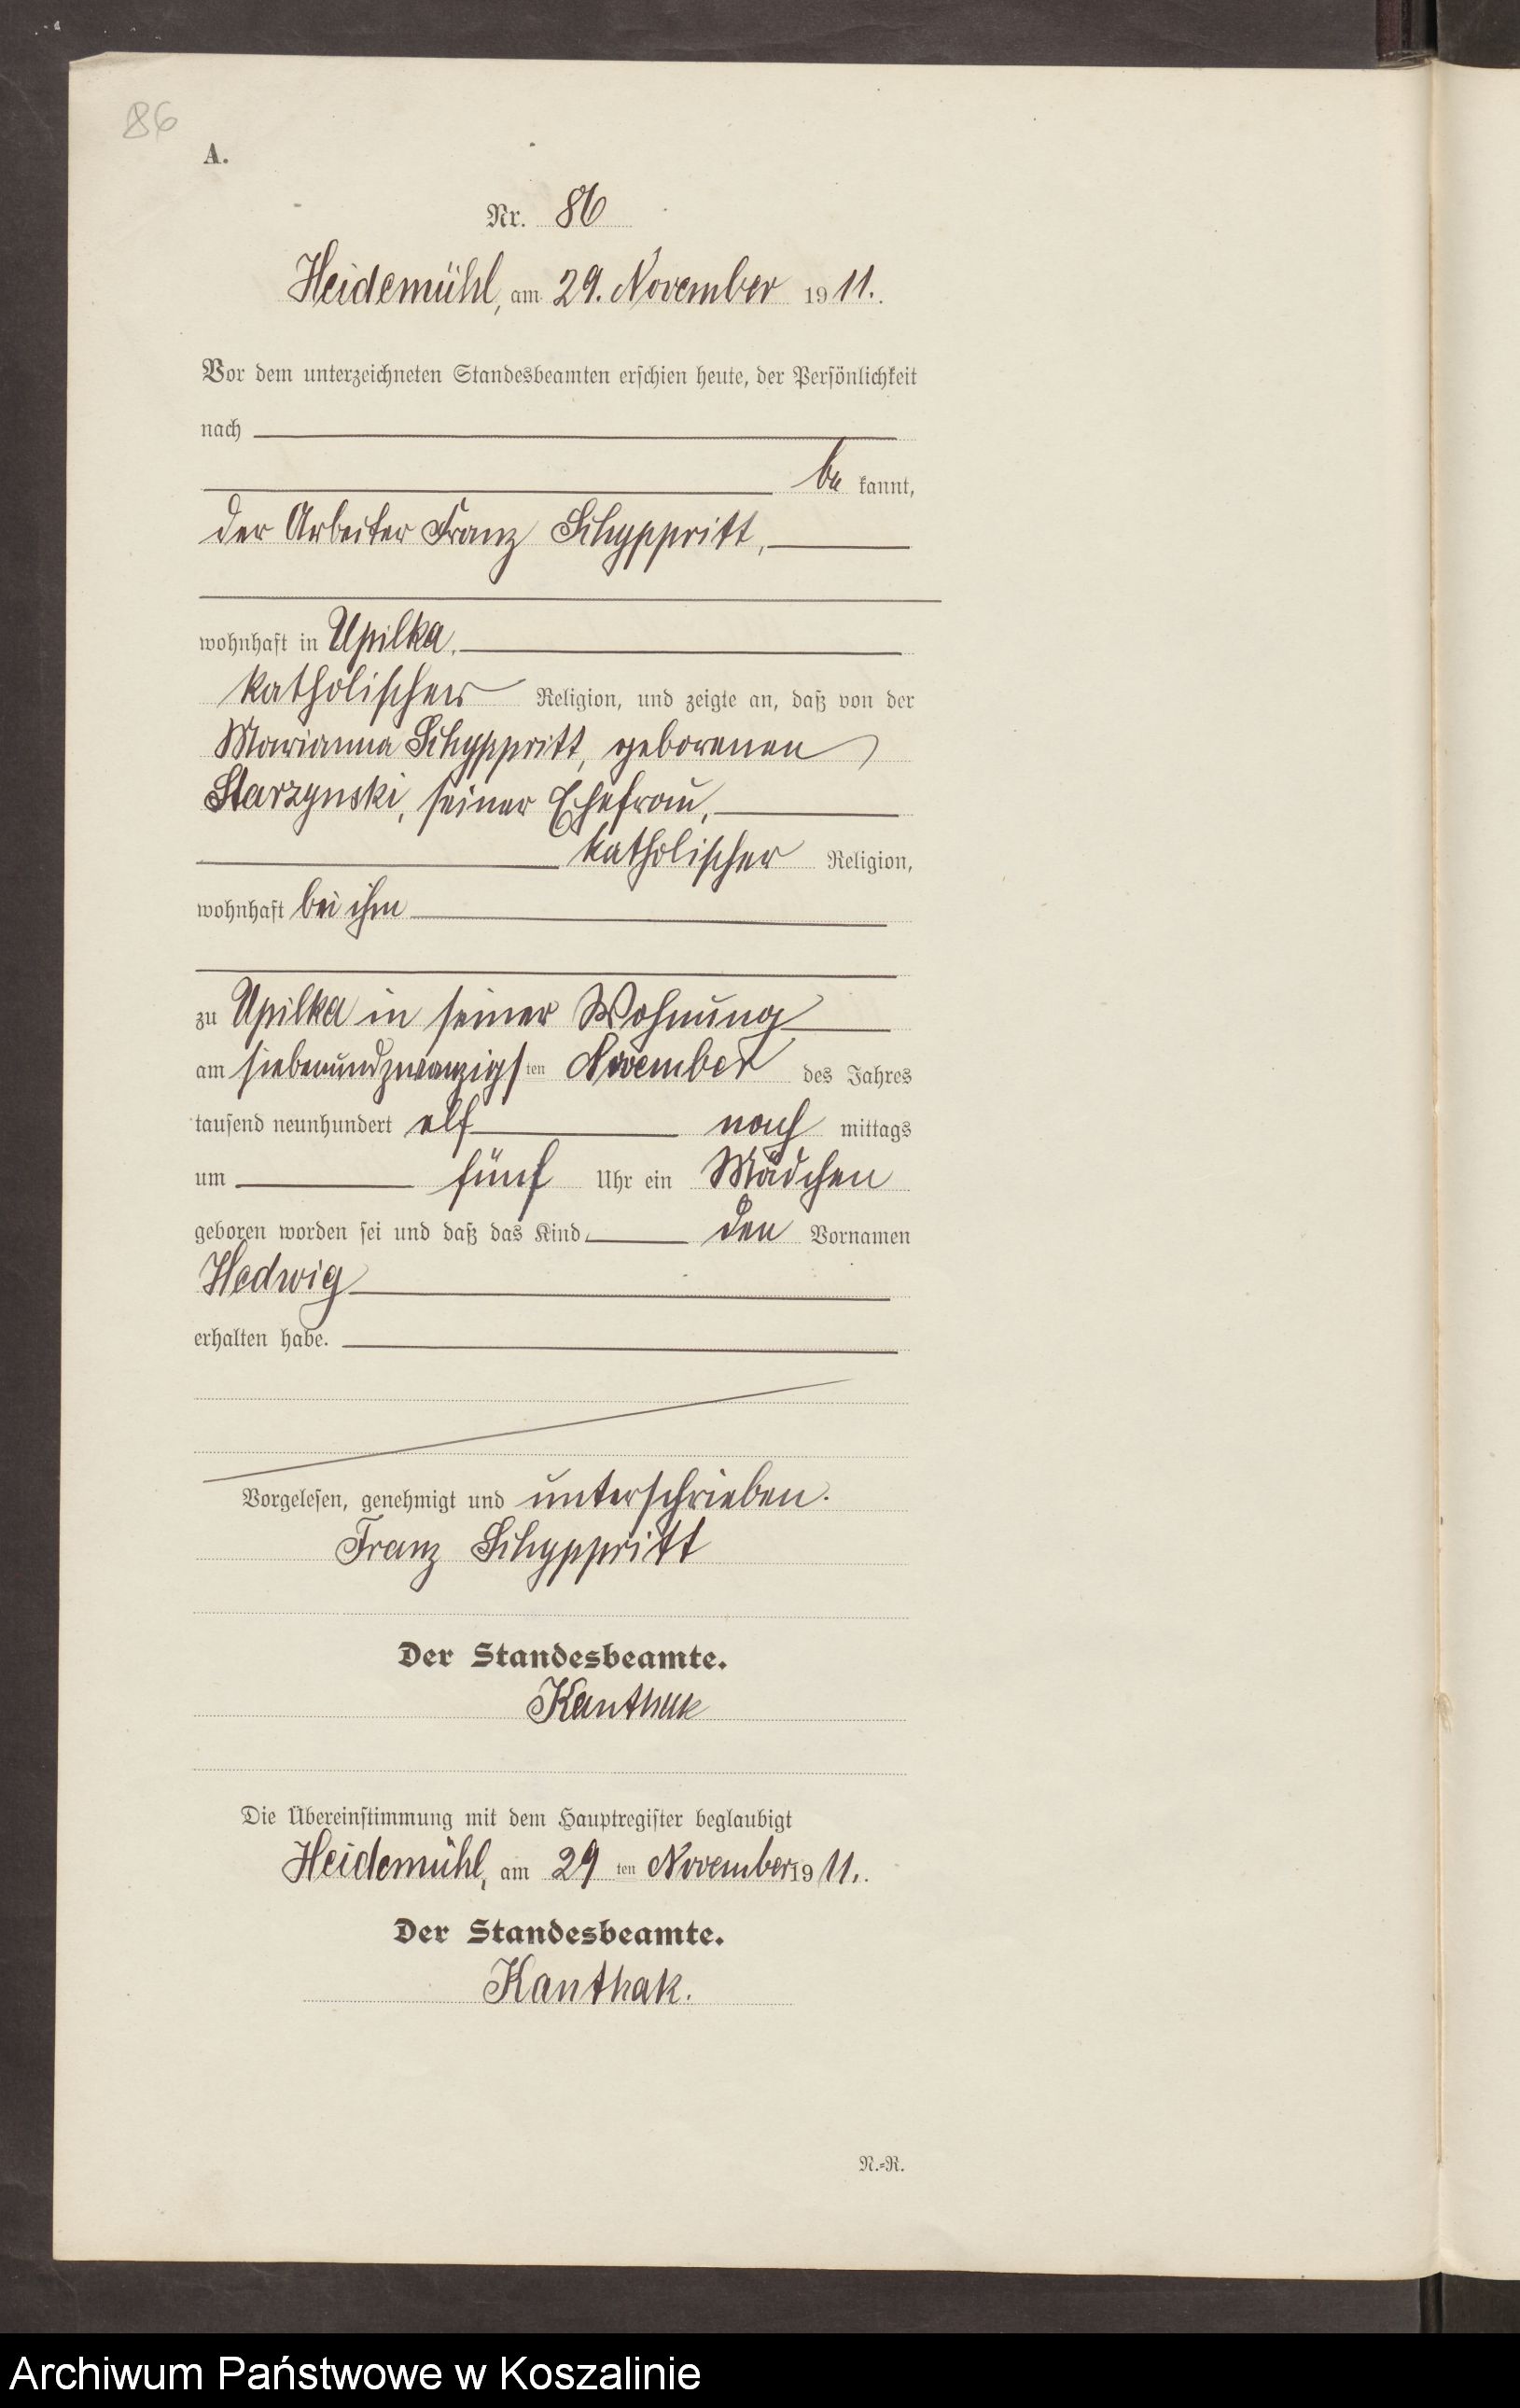 86
A.
Nr. 86
Heidemühl, am 29. November 1911.
Vor dem unterzeichneten Standesbeamten erschien heute, der Persönlichkeit
nach
be kannt,
der Arbeiter Franz Schyppritt,
wohnhaft in Upilka,
katholischer Religion, und zeigte an, daß von der
Marianna Schyppritt, geborenen
Starzynski, seiner Ehefrau,
katholischer Religion,
wohnhaft bei ihm
zu Upilka in seiner Wohnung
am siebenundzwanzigsten November des Jahres
tausend neunhundert elf nach mittags
um fünf Uhr ein Mädchen
geboren worden sei und daß das Kind den Vornamen
Hedwig
erhalten habe.
Vorgelesen, genehmigt und unterschrieben.
Franz Schyppritt
Der Standesbeamte.
Kanthak
Die Übereinstimmung mit dem Hauptregister beglaubigt
Heidemühl, am 29 ten November 1911.
Der Standesbeamte.
Kanthak.
N.-R.
Archiwum Państwowe w Koszalinie